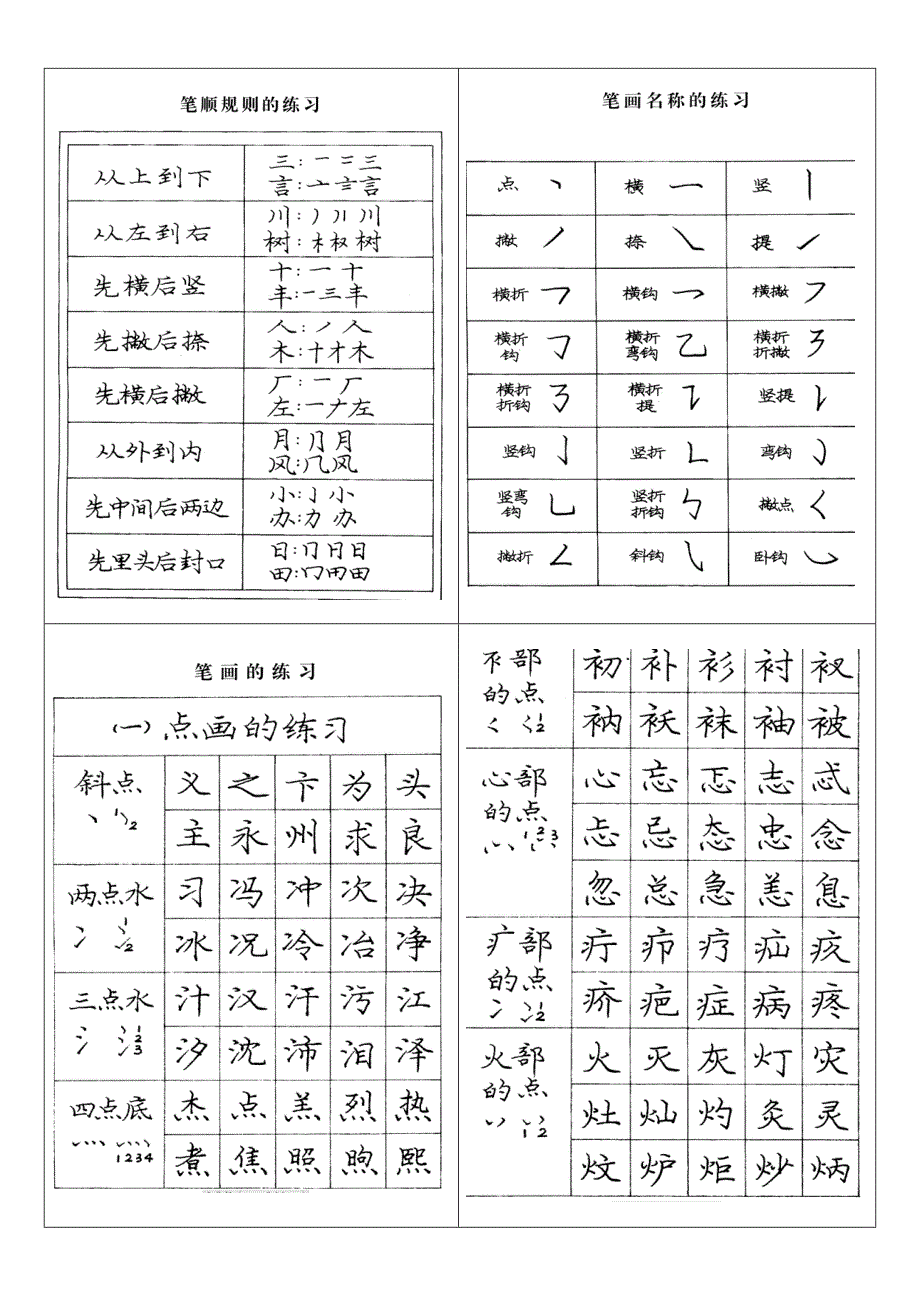 笔顺规则的练习
从上到下 三:一二三
言:亠言言
从左到右 川:丿川川
树:木权树
先横后竖 十:一十
丰:一三丰
先撇后捺 人:丿人
木:十才木
先横后撇 厂:一厂
左:一𠂇左
从外到内 月:⺆月月
风:几风
先中间后两边 小:亅小
办:力办
先里头后封口 日:冂日日
田:冂用田
笔画名称的练习
点 丶 横 一 竖 丨
撇 丿 捺 ㇏ 提 ㇀
横折 𠃍 横钩 乛 横撇 ㇇
横折钩 𠃌 横折弯钩 乙 横折折撇 ㇋
横折折钩 ㇌ 横折提 ㇊ 竖提 ㇙
竖钩 亅 竖折 ㇗ 弯钩 ㇁
竖弯钩 乚 竖折折钩 ㇉ 撇点 ㇛
撇折 ㇜ 斜钩 ㇂ 卧钩 ㇃
笔画的练习
(一)点画的练习
斜点 义 之 卞 为 头
丶 1 2 主 永 州 求 良
两点水 习 冯 冲 次 决
冫 1 2 冰 况 冷 冶 净
三点水 汁 汉 汗 污 江
氵 1 2 3 汐 沈 沛 泪 泽
四点底 杰 点 羔 烈 热
灬 1234 煮 焦 照 煦 熙
衤部的点 初 补 衫 衬 衩
1 2 衲 袄 袜 袖 被
心部的点 心 忘 忑 志 忒
1 2 3 忐 忌 态 忠 念
忽 总 急 恙 息
疒部的点 疔 疖 疗 疝 疫
冫 1 2 疥 疤 症 病 疼
火部的点 火 灭 灰 灯 灾
1 2 灶 灿 灼 灸 灵
炆 炉 炬 炒 炳